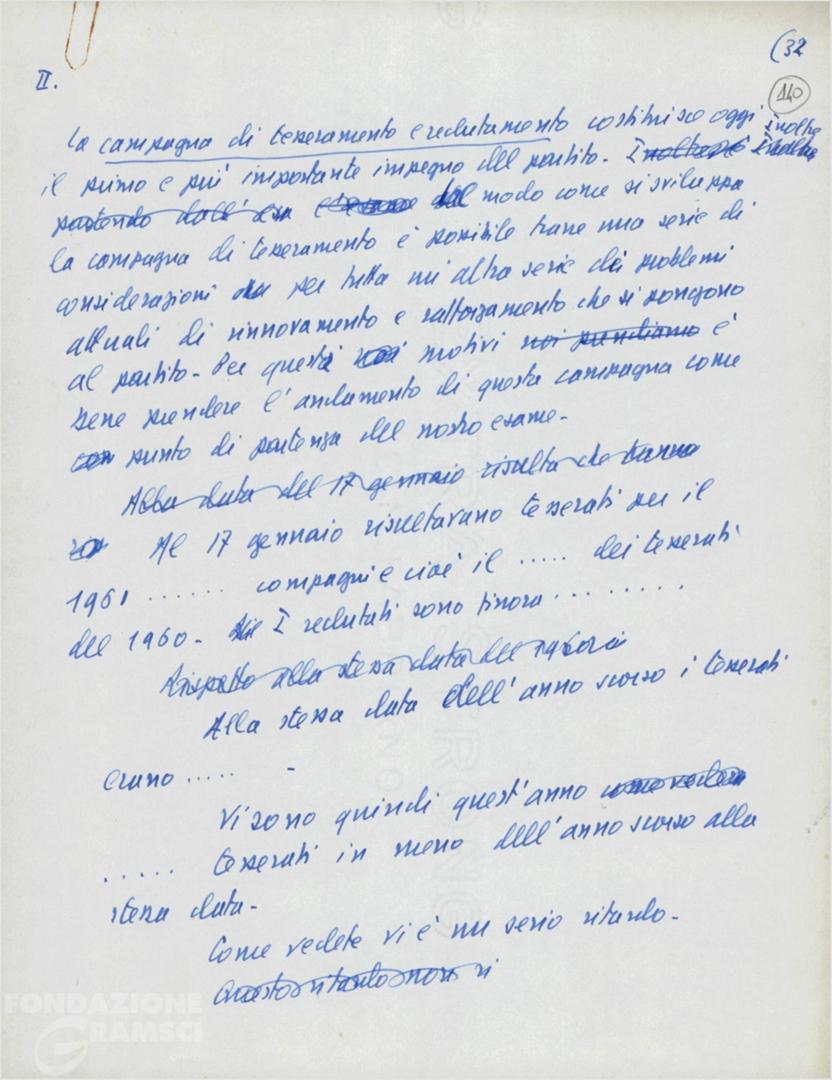 (32
II.
140
La campagna di tesseramento e reclutamento costituisce oggi
il primo e più importante impegno del partito. Inoltre
partendo dall' dal modo come si sviluppa
la campagna di tesseramento è possibile trarre una serie di
considerazioni per tutta un'altra serie di problemi
attuali di rinnovamento e rafforzamento che si pongono
al partito. Per questi motivi noi prendiamo è
bene prendere l'andamento di questa campagna come
punto di partenza del nostro esame.
Alla data del 17 gennaio risulta che
Al 17 gennaio risultavano tesserati per il
1961 ....... compagni e cioè il ..... dei tesserati
del 1960. I reclutati sono finora .........
Rispetto alla stessa data del 1960
Alla stessa data dell'anno scorso i tesserati
erano ..... -
Vi sono quindi quest'anno come vedete
..... tesserati in meno dell'anno scorso alla
stessa data.
Come vedete vi è un serio ritardo.
Questo ritardo non si
FONDAZIONE
GRAMSCI